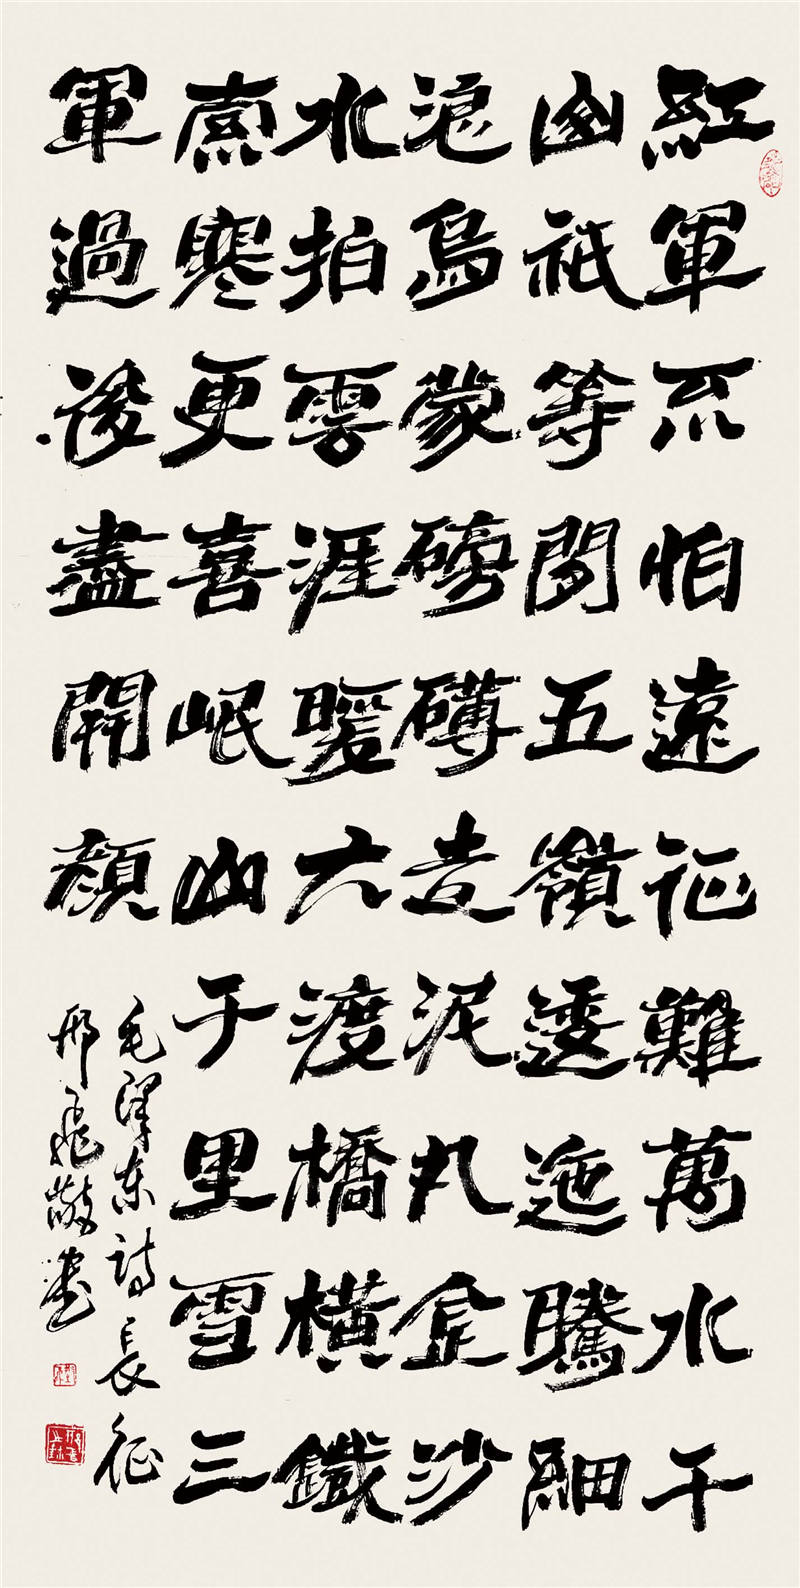 紅軍不怕遠征難萬水千
山祇等閒五嶺逶迤騰細
浪烏蒙磅礡走泥丸金沙
水拍雲涯暖大渡橋橫鐵
索寒更喜岷山千里雪三
軍過後盡開顏
毛澤东詩長征
邢飛敬書